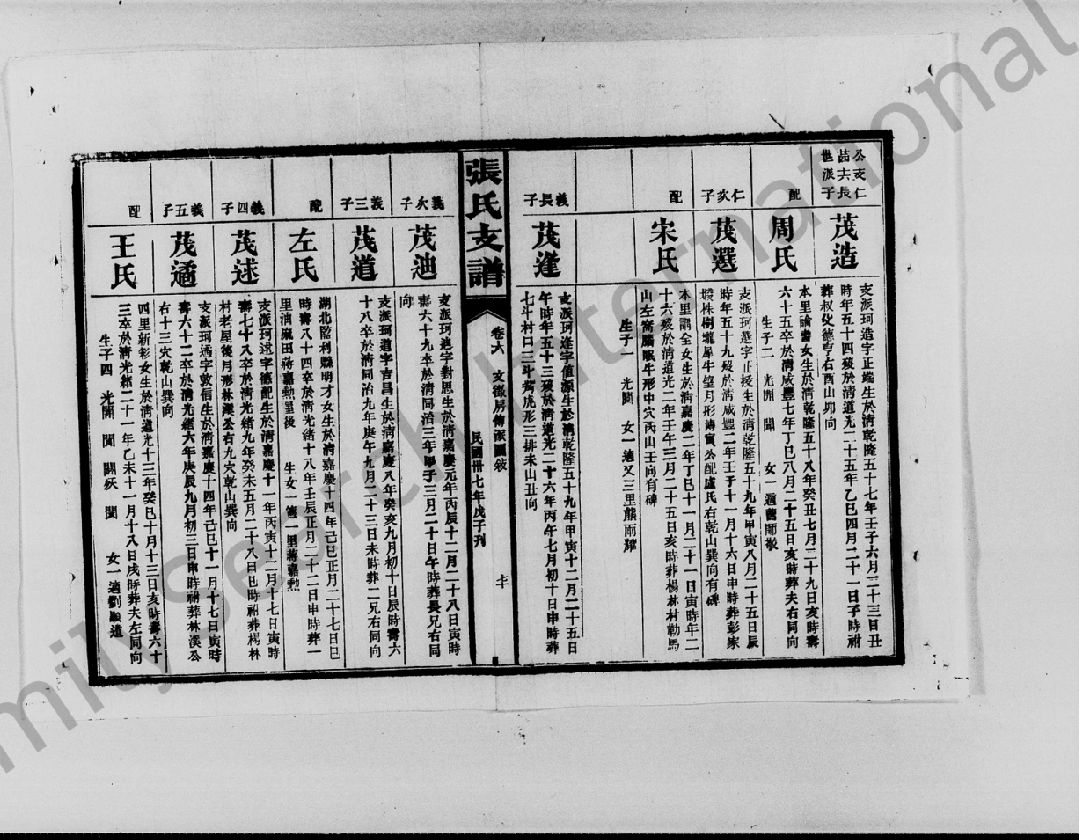 茂造
支派珂造字正端生於清乾隆五十七年壬子六月二十三日丑
時年五十四歿於清道光二十五年乙巳四月二十一日子時祔
葬叔攸德亨右酉山卯向
配
周氏
本里諭書女生於清乾隆五十八年癸丑七月二十九日亥時壽
六十五卒於清咸豐七年丁巳八月二十五日亥時葬夫右同向
生子二 光 閗 女一適
仁次子
茂選
支派珂選字正授生於清乾隆五十九年甲寅八月二十五日辰
時年五十九歿於清咸豐二年壬子十一月十六日申時葬彭家
塅株樹壠犀牛望月形 公配盧氏右乾山巽向有碑
配
宋氏
本里 全女生於清嘉慶二年丁巳十一月二十一日寅時年二
十六歿於清道光二年壬午三月二十五日亥時葬楊林村勒馬
山左 眠牛形中穴丙山壬向有碑
生子一 光閗 女一適 三里熊
義長子
茂逢
支派珂逢字值源生於清乾隆五十九年甲寅十二月二十五日
午時年五十三歿於清道光二十六年丙午七月初十日申時葬
七斗村口三斗 虎形三排未山丑向
張氏支譜
卷六 文徵房傳家圖
民國卅七年戊子刊
義次子
茂迪
支派珂迪字對思生於清嘉慶元年丙辰十二月二十八日寅時
壽六十九卒於清同治三年甲子三月二十日午時葬長兄右同
向
義三子
茂道
支派珂道字吉昌生於清嘉慶八年癸亥九月初十日辰時壽六
十八卒於清同治九年庚午九月二十三日未時葬二兄右同向
配
左氏
湖北監利縣明才女生於清嘉慶十四年己巳正月二十七日巳
時壽八十四卒於清光緒十八年壬辰正月二十二日申時葬一
里清麻田蔣嘉勲屋後 生女一適一里蔣嘉勲
義四子
茂述
支派珂述字德配生於清嘉慶十一年丙寅十二月十七日寅時
壽七十八卒於清光緒九年癸未五月二十八日巳時祔葬楊林
村老屋後月形林溪公右九穴乾山巽向
義五子
茂遹
支派珂遹字敦信生於清嘉慶十四年己巳十一月十七日寅時
壽六十二卒於清光緒六年庚辰九月初三日申時祔葬林溪公
右十三穴乾山巽向
配
王氏
四里新彩女生於清道光十三年癸巳十月十三日亥時壽六十
三卒於清光緒二十一年乙未十一月十八日戌時葬夫左同向
生子四 光閑 閩 關 閏 女一適劉